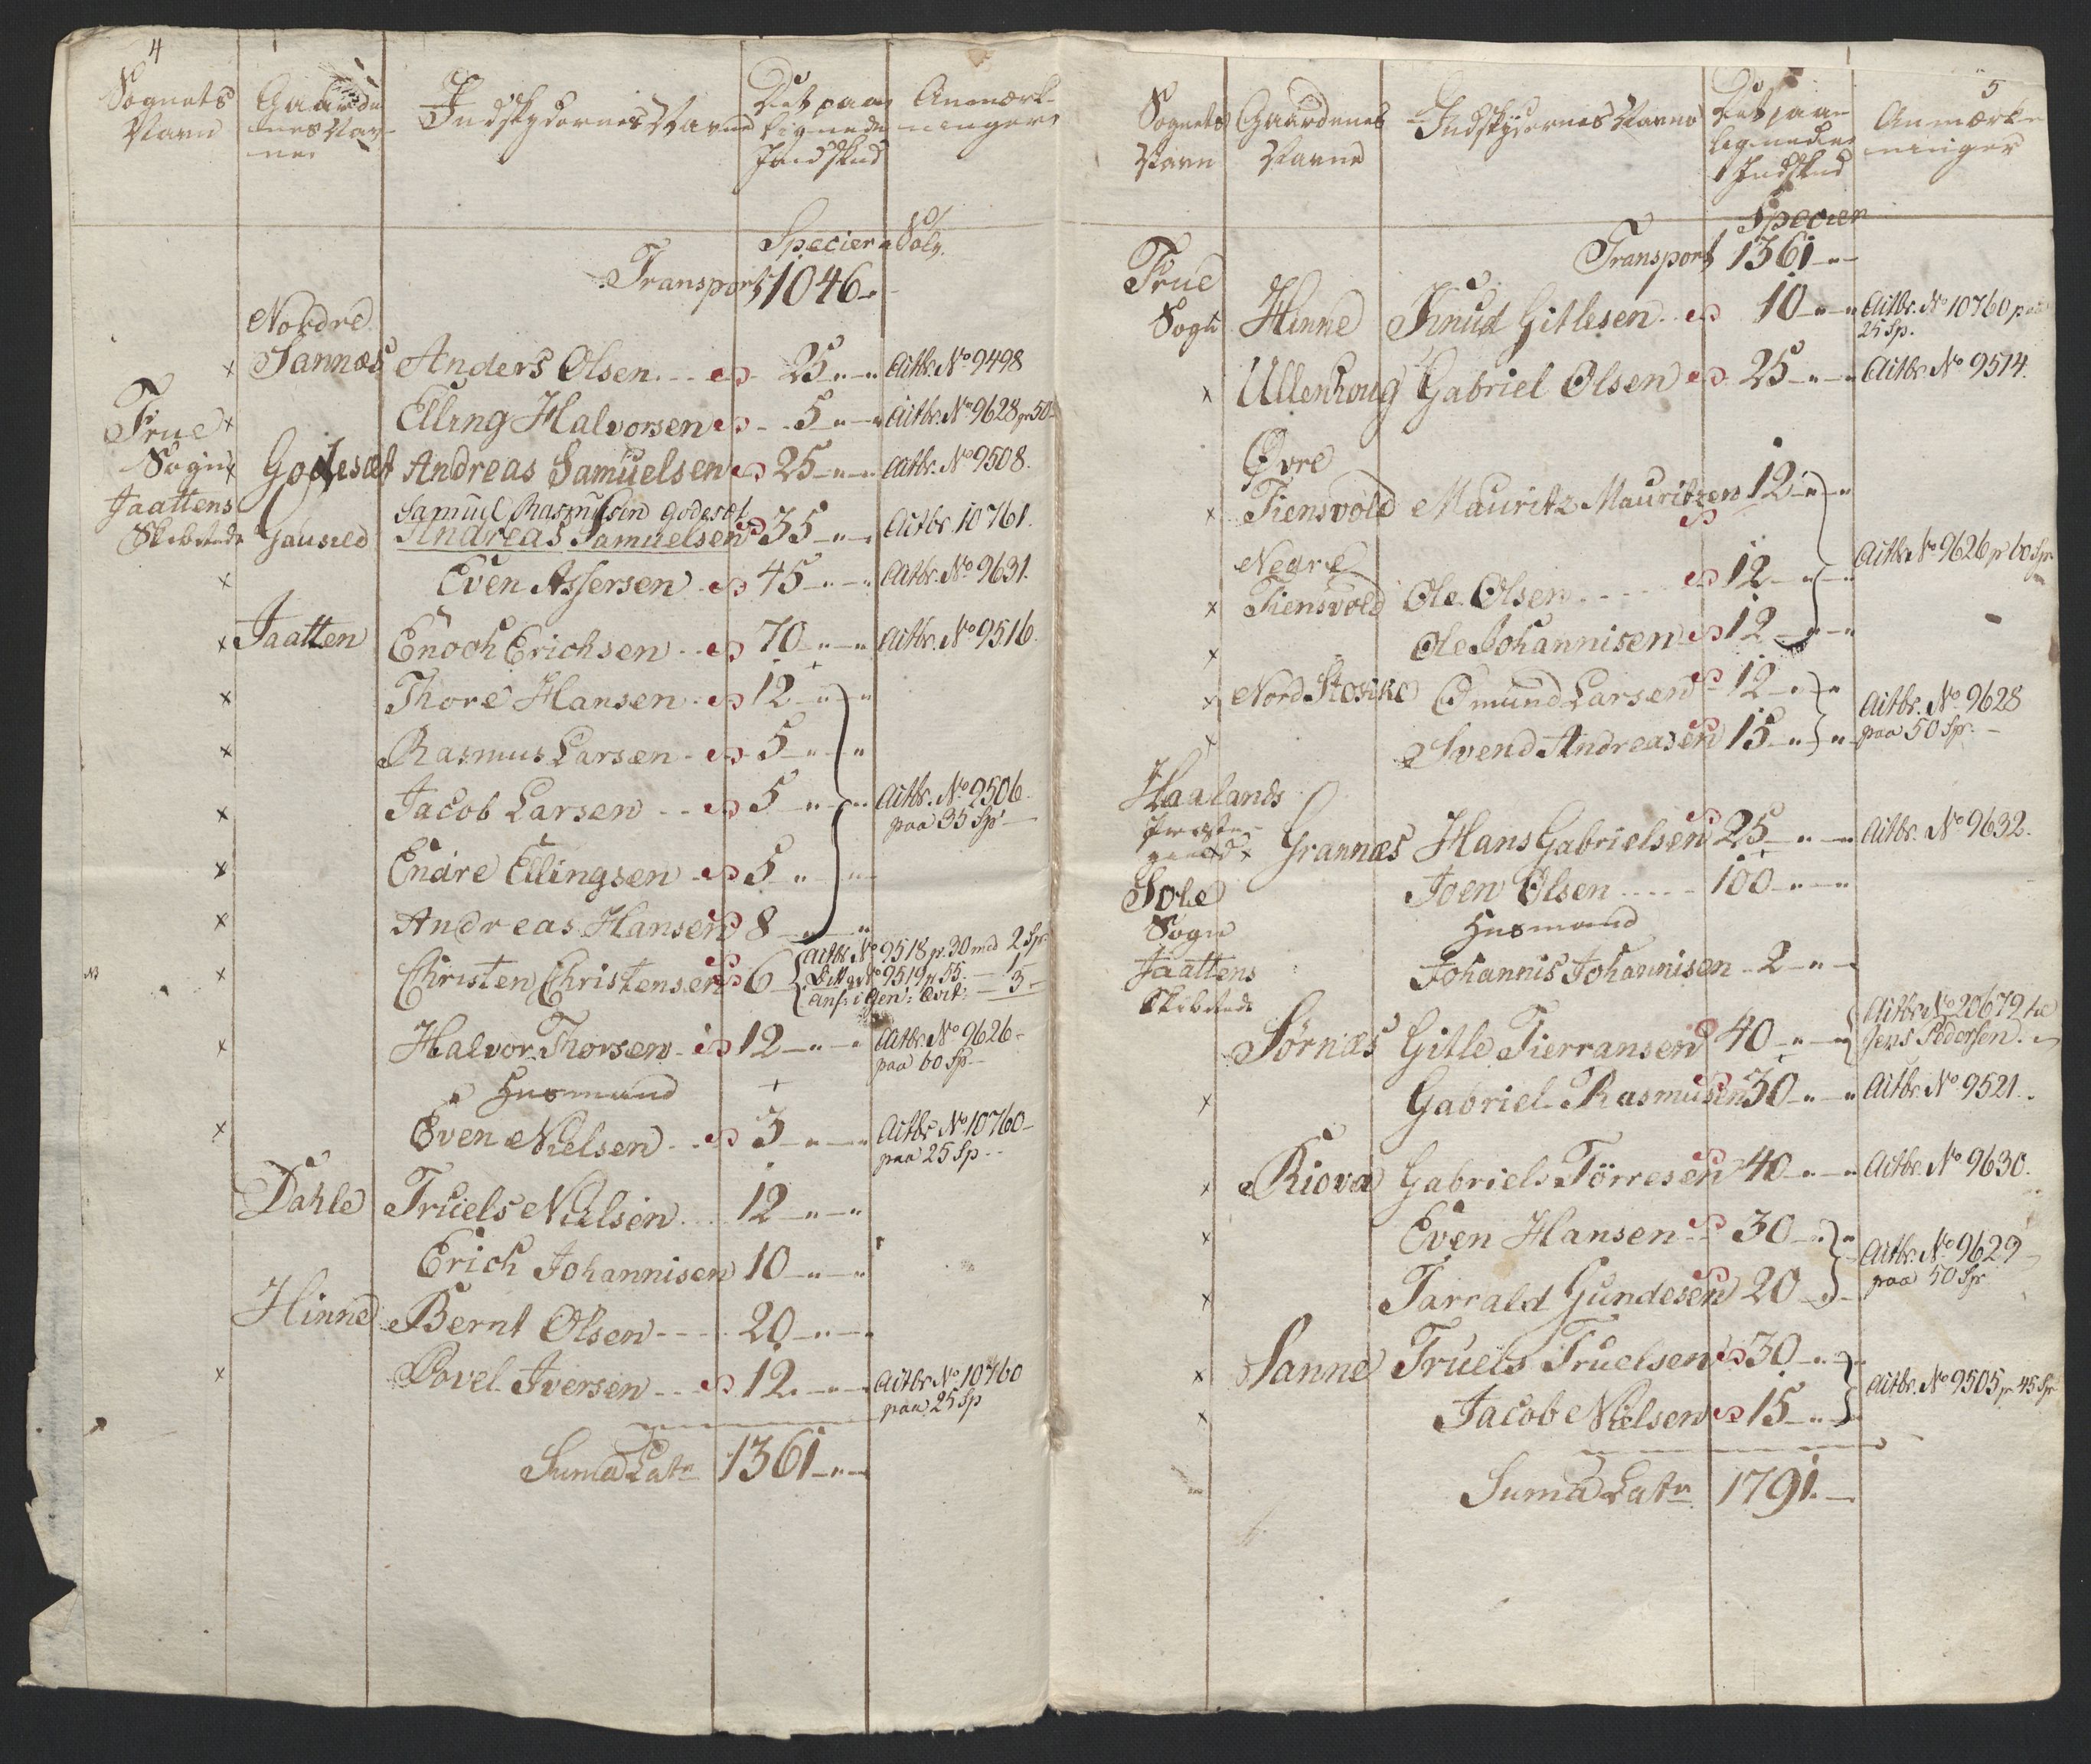 4
Sognets Navn | Gaardenes Navne | Indskydernes Navne | Det paalignede Indskud | Anmærkninger
Specier Sølv.
Transport 1046
Nordre
× Sannæs Anders Olsen 25 Actbr. No 9498
Frue Sogn
Jaattens Skibrede
× Elling Halvorsen 5 Actbr. No 9628 pr 50
× Godesæt Andreas Samuelsen 25 Actbr. No 9508.
Samuel Rasmusen Godesæt
Gausled Andreas Samuelsen 35 Actbr. 10761.
× Even Assersen 45 Actbr. No 9631.
× Jaatten Enoch Erichsen 70 Actbr. No 9516.
× Thore Hansen 12
× Rasmus Larsen 5
× Jacob Larsen 5 Actbr. No 9506.
paa 35 Sp
× Endre Ellingsen 5
× Andreas Hansen 8
NB × Christen Christensen 6 Actbr. No 9518 pr. 30 med 2 Sp
No 9519 pr 55. 1
Anf: i Gen: Qvit: 3
× Halvor Thorsen 12 Actbr. No 9626
paa 60 Sp
Husmand
× Even Nielsen 3 Actbr No 10760
paa 25 Sp
Dahle Truels Nielsen 12
Erich Johannisen 10
Hinne Bernt Olsen 20
× Povel Iversen 12 Actbr No 10760
paa 25 Sp
Suma Lat 1361
5
Sognets Navn | Gaardenes Navne | Indskydernes Navne | Det paalignede Indskud | Anmærkninger
Specier
Transport 1361
Frue Sogn
Hinne Knud Gitlesen 10 Actbr. No 10760 paa
25 Sp.
× Ullenhoug Gabriel Olsen 25 Actbr No 9514.
Øvre
× Tiensvold Mauritz Mauritzen 12
Nedre
× Tiensvold Ole Olsen 12 Actbr No 9626 pr 60 Sp
× Ole Johannisen 12
× Nord Stokke Omund Larsen 12 Actbr. No 9628
× Svend Andreasen 15 paa 50 Sp.
Haalands Præstegield
× Grannæs Hans Gabrielsen 25 Actbr. No 9632.
Sole Sogn
Jaattens Skibrede
Joen Olsen 100
Husmand
Johannis Johannisen 2
Sørnæs Gitle Tierransen 40 Actbr No 20679 til
Jens Pedersen.
× Gabriel Rasmusen 30 Actbr. No 9521.
× Riova Gabriel Törresen 40 Actbr. No 9630.
× Even Hansen 30 Actbr. No 9629
× Tarrald Gundesen 20 paa 50 Sp
× Sanne Truels Truelsen 30
× Jacob Nielsen 15 Actbr. No 9505 pr 45 Sp
Suma Lat 1791.